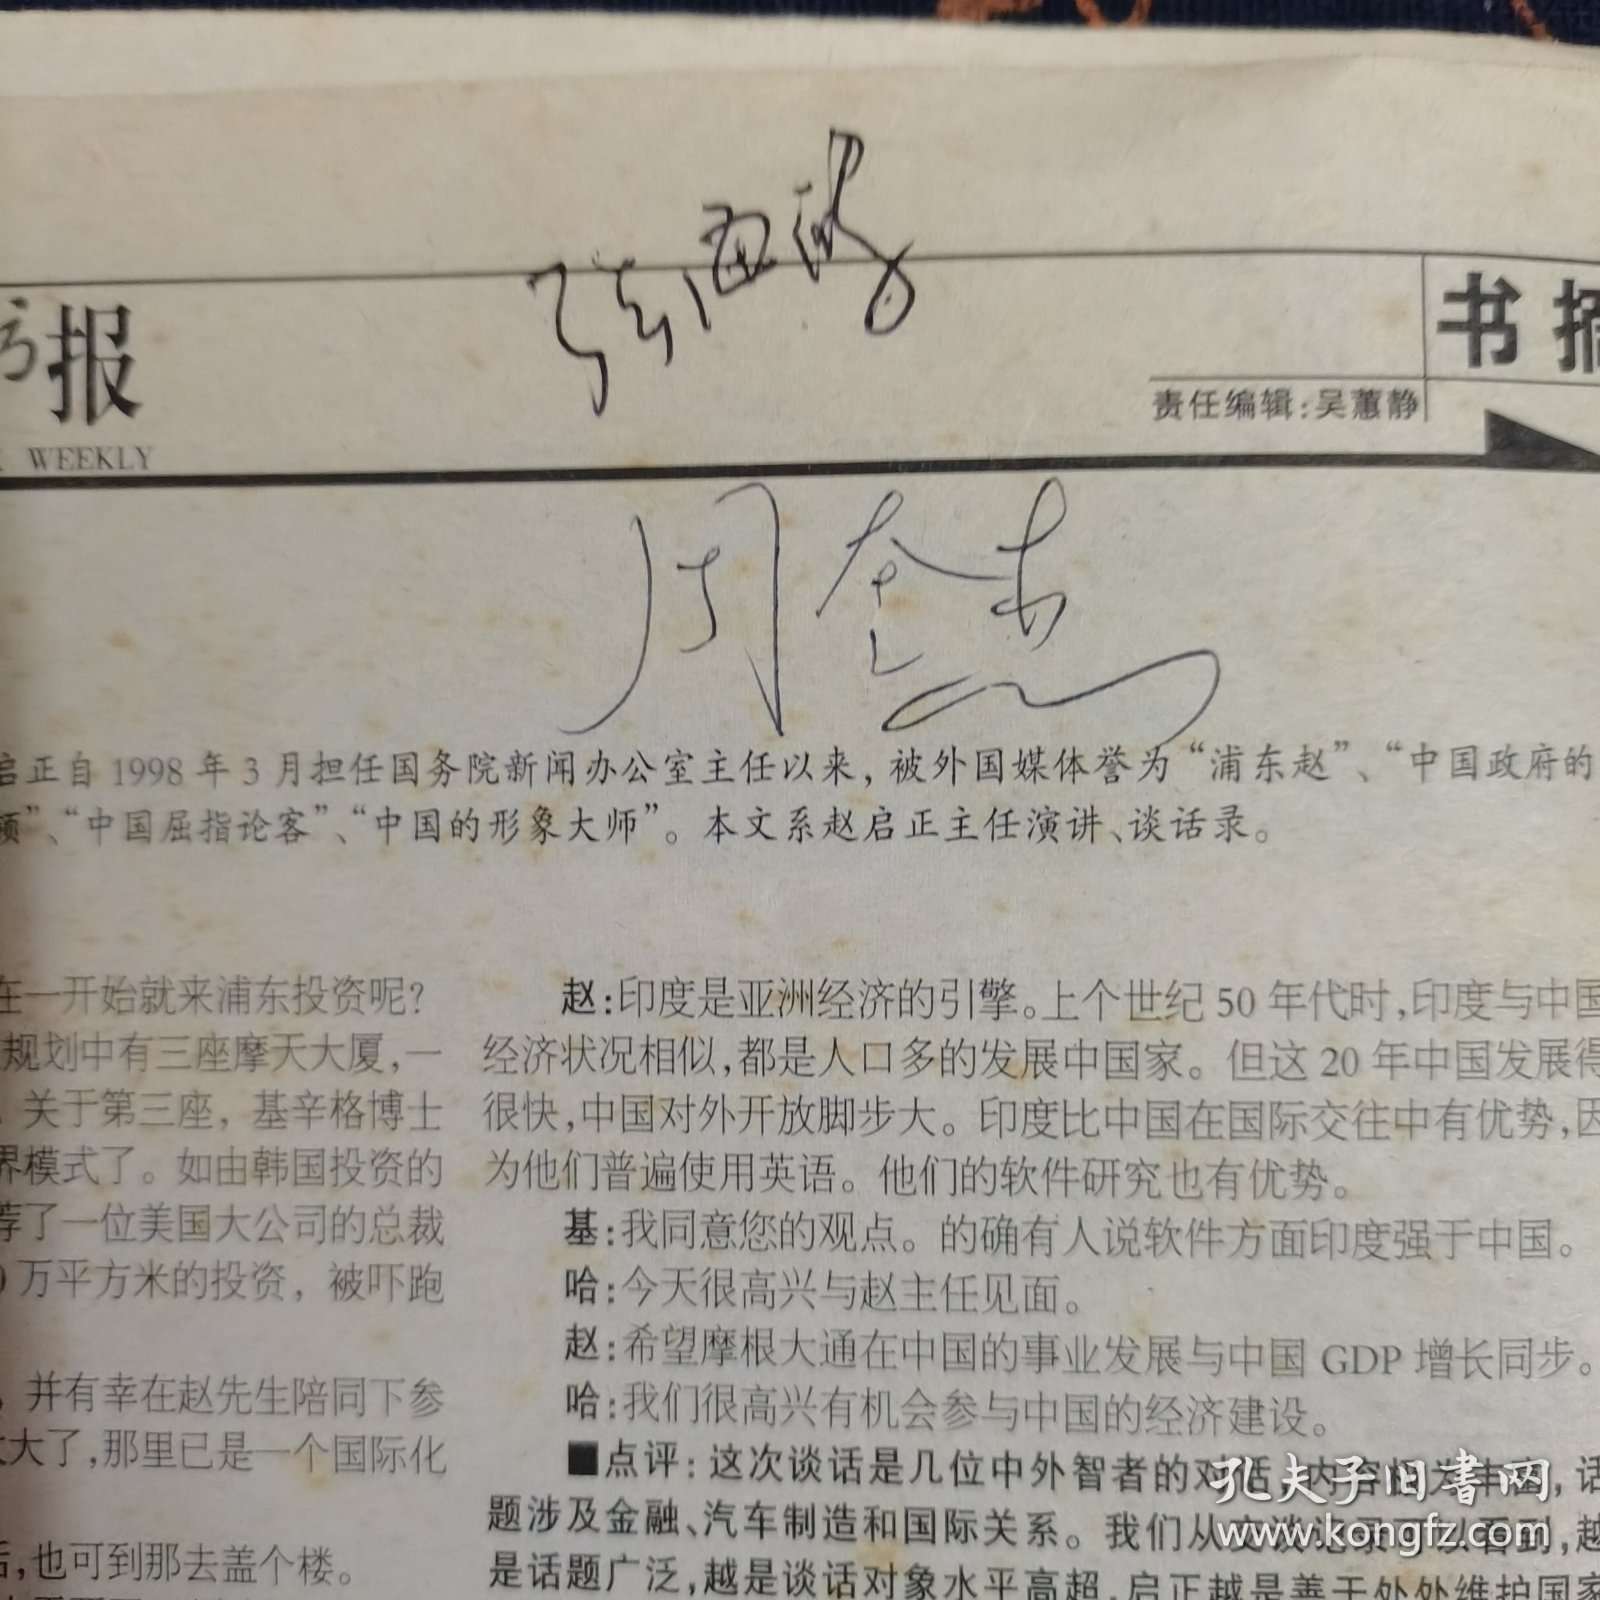 报
WEEKLY
书
责任编辑:吴蕙静
周
启正自1998年3月担任国务院新闻办公室主任以来,被外国媒体誉为“浦东赵”、“中国政府的
”、“中国屈指论客”、“中国的形象大师”。本文系赵启正主任演讲、谈话录。
在一开始就来浦东投资呢?
规划中有三座摩天大厦,一
关于第三座,基辛格博士
界模式了。如由韩国投资的
荐了一位美国大公司的总裁
万平方米的投资,被吓跑
,并有幸在赵先生陪同下参
大了,那里已是一个国际化
,也可到那去盖个楼。
赵:印度是亚洲经济的引擎。上个世纪50年代时,印度与中国
经济状况相似,都是人口多的发展中国家。但这20年中国发展得
很快,中国对外开放脚步大。印度比中国在国际交往中有优势,因
为他们普遍使用英语。他们的软件研究也有优势。
基:我同意您的观点。的确有人说软件方面印度强于中国。
哈:今天很高兴与赵主任见面。
赵:希望摩根大通在中国的事业发展与中国GDP增长同步。
哈:我们很高兴有机会参与中国的经济建设。
■点评:这次谈话是几位中外智者的对话,内容极为丰富,话
题涉及金融、汽车制造和国际关系。我们从交谈记录可以看到,越
是话题广泛,越是谈话对象水平高超,启正越是善于处处维护国家
孔夫子旧书网
www.kongfz.com